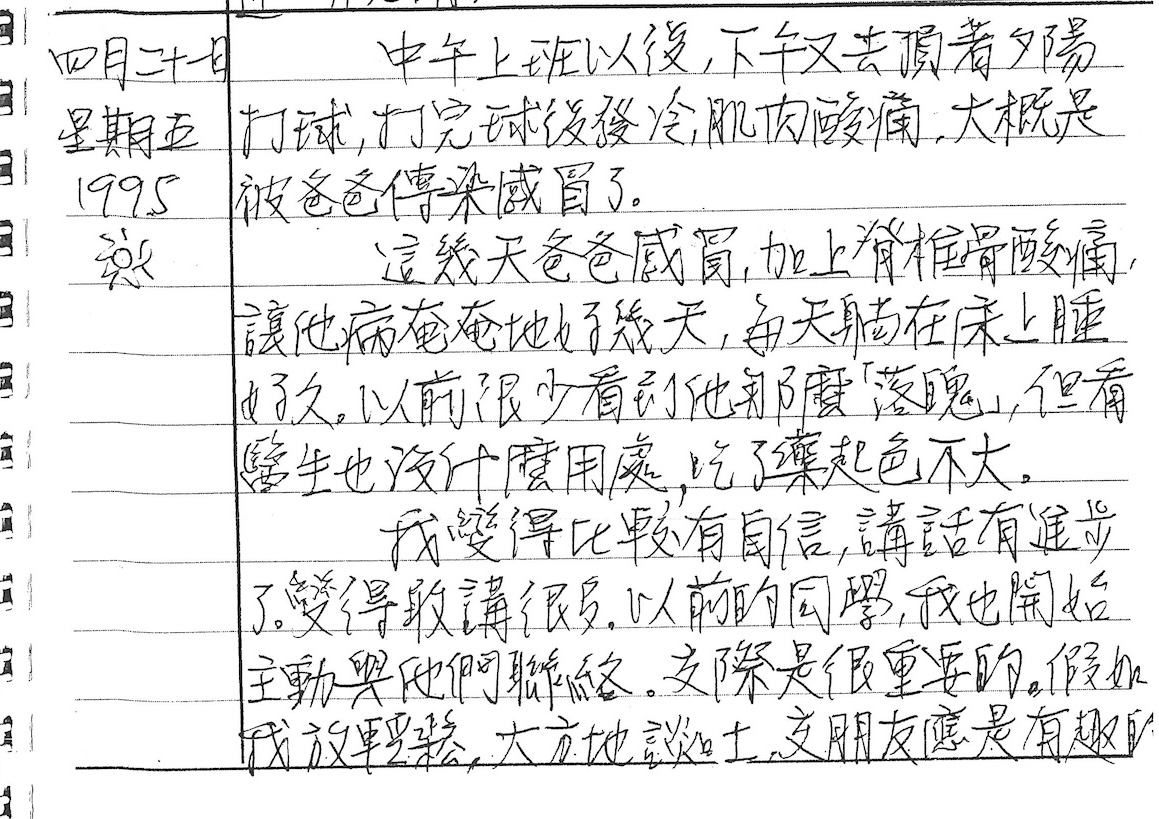 四月二十一日
星期五
1995
中午上班以後,下午又去頂著夕陽
打球,打完球後發冷,肌肉酸痛,大概是
被爸爸傳染感冒了。
這幾天爸爸感冒,加上脊椎骨酸痛,
讓他病奄奄地好幾天,每天躺在床上睡
好久。以前很少看到他那麼「落魄」,但看
醫生也沒什麼用處,吃了藥起色不大。
我變得比較有自信,講話有進步
了。變得敢講很多。以前的同學,我也開始
主動與他們聯絡。交際是很重要的。假如
我放輕鬆,大方地談吐,交朋友應是有趣的